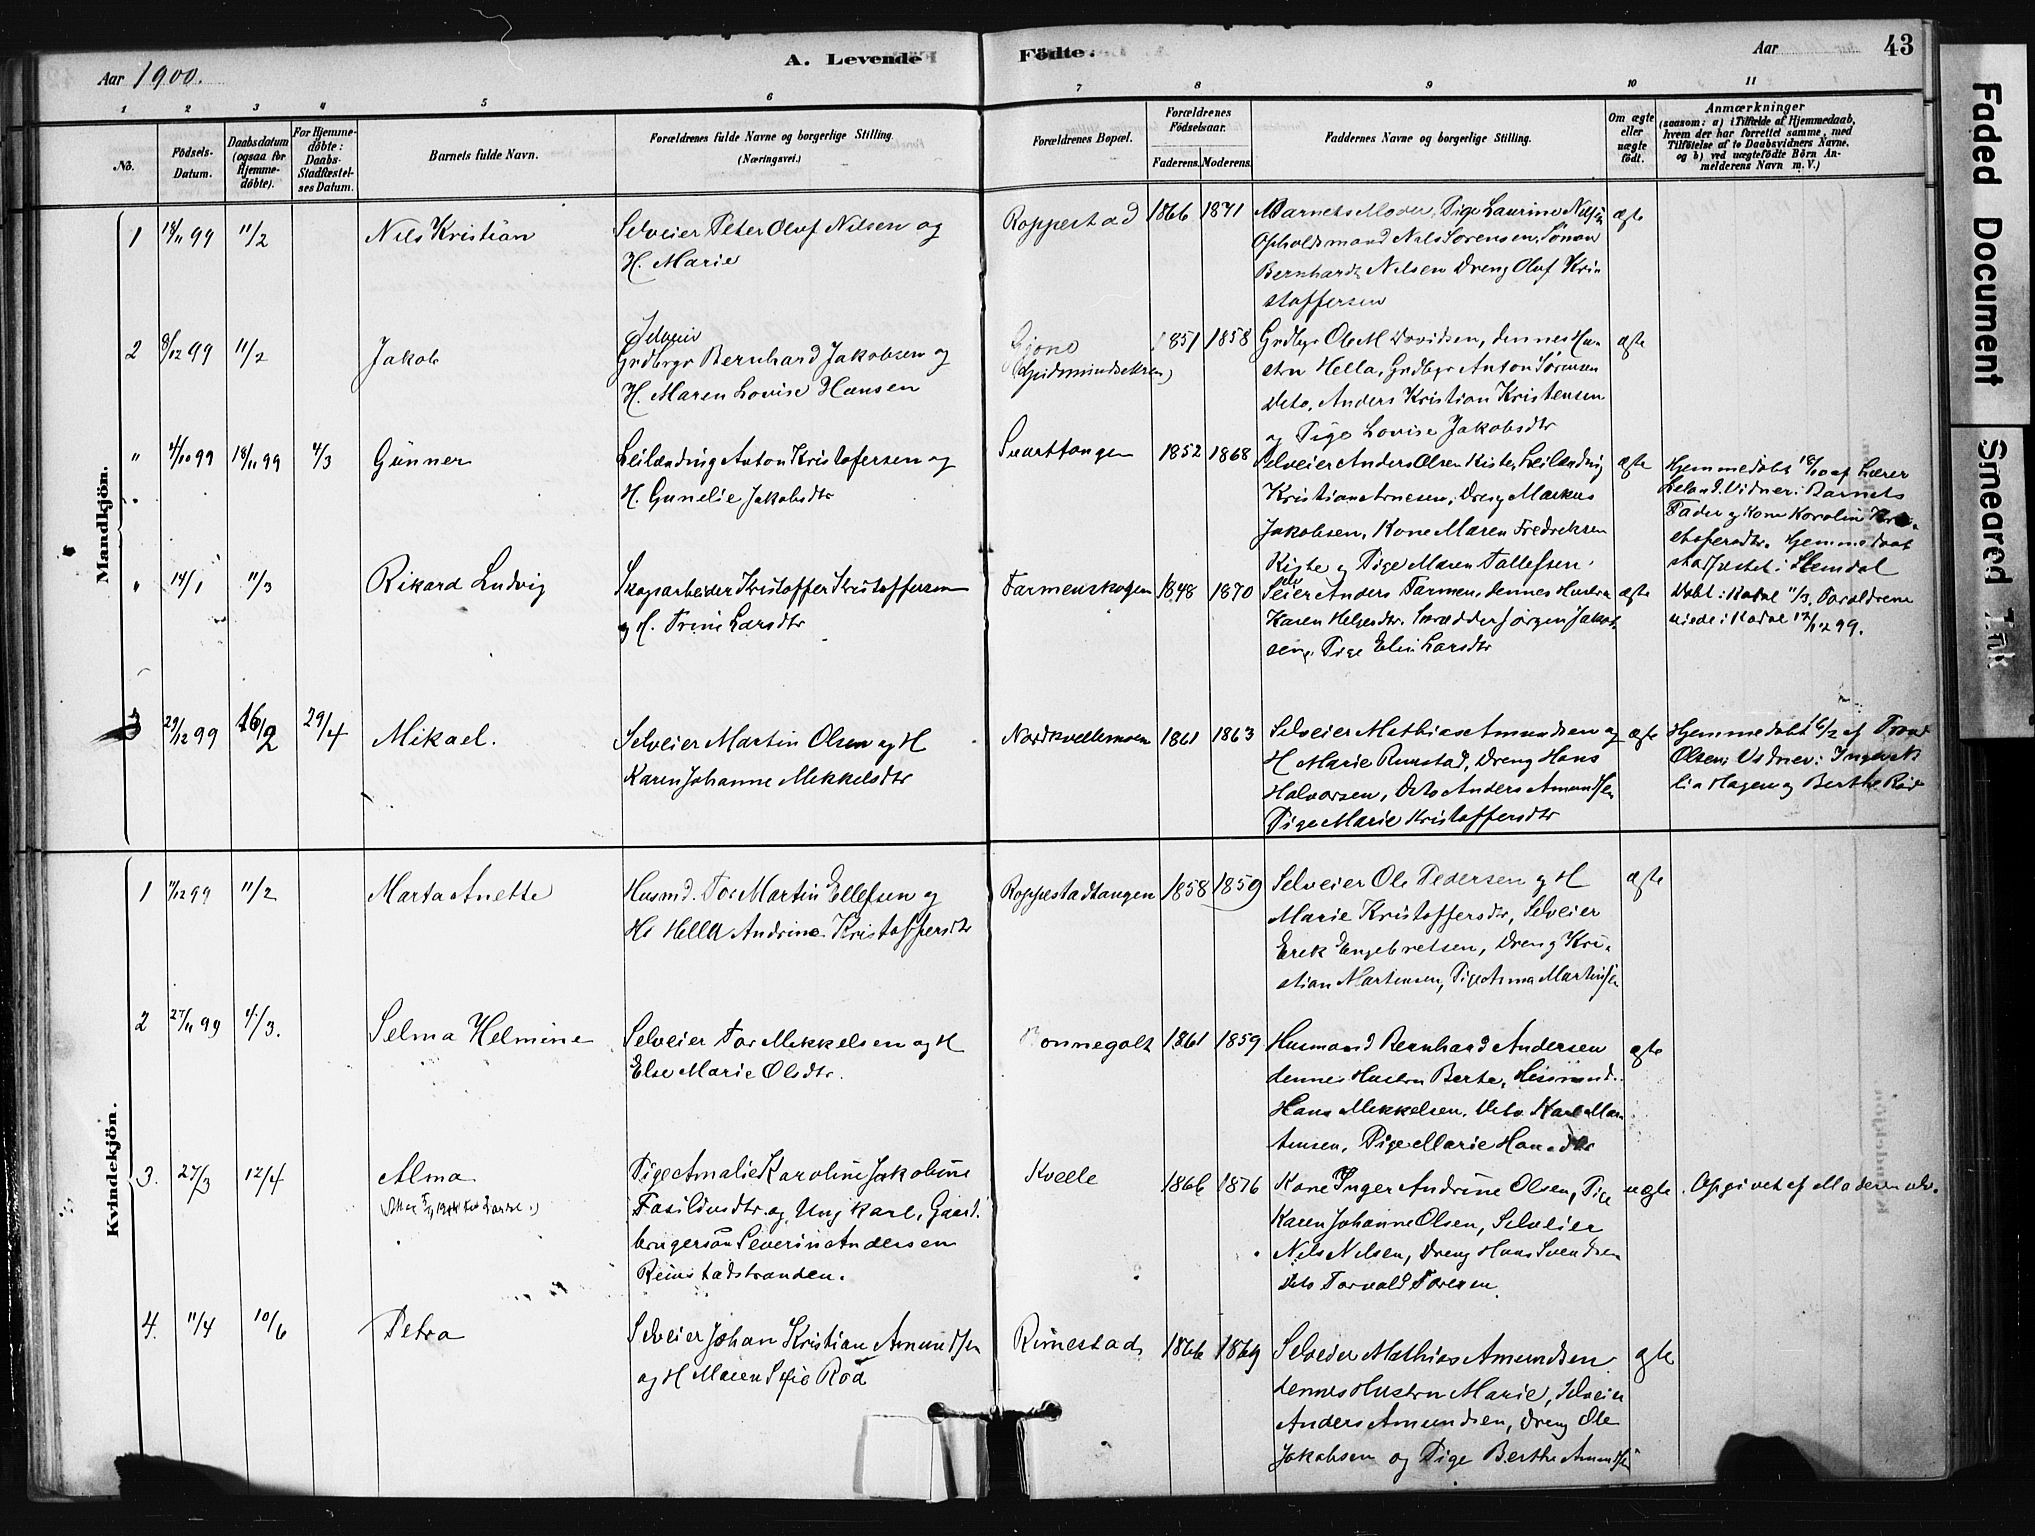 Aar 1900.
A. Levende
Födte.
Aar
43
1 2 3 4 5 6 7 8 9 10 11
No.
Födsels-
Datum.
Daabsdatum
(ogsaa for
Hjemme-
döbte).
For Hjemme-
döbte:
Daabs-
Stadfæstel-
ses Datum.
Barnets fulde Navn.
Forældrenes fulde Navne og borgerlige Stilling.
(Næringsvei.)
Forældrenes Bopæl.
Forældrenes
Födselsaar.
Faderens. Moderens.
Faddernes Navne og borgerlige Stilling.
Om ægte
eller
uægte
födt.
Anmærkninger
(saasom: a) i Tilfælde af Hjemmedaab,
hvem der har forrettet samme, med
Tilföielse af to Daabsvidners Navne,
og b) ved uægtefödte Börn An-
melderens Navn m. V.)
Mandkjön.
1 18/11 99 11/2 Nils Kristian
Selveier Peter Oluf Nilsen og
H. Marie
Roppestad 1866 1871
Barnets Moder, Pige Laurine Nilsen
Opholdsmand Nils Sorensen, Sönnen
Bernhard Nilsen Dreng Oluf Kri
stoffersen
ægte
2 9/12 99 11/2 Jakob
Selveier
Grdbrgr Bernhard Jakobsen og
H. Maren Lovise Hansen
Gjono
1851 1858
Grdbgr Ole M Davidsen, dennes Hu
stru Hella, Grdbgr Anton Sörensen
Deto, Anders Kristian Kristensen
og Pige Lovise Jakobsdtr
ægte
" 4/10 99 18/11 99 4/3 Gunner
Leilænding Anton Kristofersen og
H. Gunelie Jakobsdtr
Svarttangen 1852 1868
Selveier Anders Olsen Kiste, Leilænding
Kristian Arnesen, Dreng Markus
Jakobsen, Kone Maren Fredriksen
Kiste og Pige Maren Tollefsen.
ægte
Hjemmedöbt 18/10 af Lærer
Leland. Vidner: Barnets
Fader og Kone Karolin Kri-
stofersdtr. Hjemmedaab
stadfæstet i Slemdal
" 14/1 11/3 Rikard Ludvig
Skogsarbeider Kristoffer Kristoffersen
og H. Trine Larsdtr
Farmenskogen 1848 1870
Seleier Anders Farmen, dennes Hustru
Karen Helgesdtr. Skrædder Jörgen Jakob
sen, Pige Elin Larsdtr
ægte
Döbt i Kodal 11/3. Forældrene
viede i Kodal 12/12 99.
3 29/12 99 16/2 29/4 Mikael.
Selveier Martin Olsen og H
Karen Johanne Mikkelsdtr
Nordkvellemoen 1861 1863
Selveier Mathias Amundsen og
H Marie Rimstad, Dreng Hans
Halvorsen, Deto Anders Amundsen
Pige Marie Kristoffersdtr
ægte
Hjemmedöbt 16/2 af
Olsen; Vidner:
lia Hagen og Berthe Röd
Kvindekjön.
1 11/12 99 11/2 Marta Anette
Husmd. Tor Martin Ellefsen og
H. Hella Andrine Kristoffersdtr
Roppestadtangen 1858 1859
Selveier Ole Pedersen og H
Marie Kristoffersdtr, Selveier
Erik Engebretsen, Dreng Kri-
stian Martensen, Pige Anna Martinsen
ægte
2 27/11 99 4/3. Selma Helmine
Selveier Tor Mikkelsen og H
Else Marie Olsdtr.
Bonnegolt 1861 1859
Husmand Bernhard Andersen
dennes Hustru Berte, Husmand.
Hans Mikkelsen, Deto Karl Mar
tinsen, Pige Marie Hansdtr
ægte
3. 27/3 12/4 Alma
Pige Amalie Karoline Jakobine
Fasilius dtr. og Ungkarl, Gaard.
brugersön Severin Andersen
Rimstadstranden.
Kvelle 1866 1876
Kone Inger Andrine Olsen, Pige
Karen Johanne Olsen, Selveier
Nils Nilsen, Dreng Hans Svendsen
Deto Torvald Toresen.
uægte.
Opgivet af Moderen selv.
4. 11/4 10/6 Petra
Selveier Johan Kristian Amundsen
og H Maren Sofie Röd
Rimestad 1866 1869
Selveier Mathias Amundsen
dennes Hustru Marie, Selveier
Anders Amundsen, Dreng Ole
Jakobsen og Pige Berthe Amundsen
ægte
Faded Document
Smeared Ink